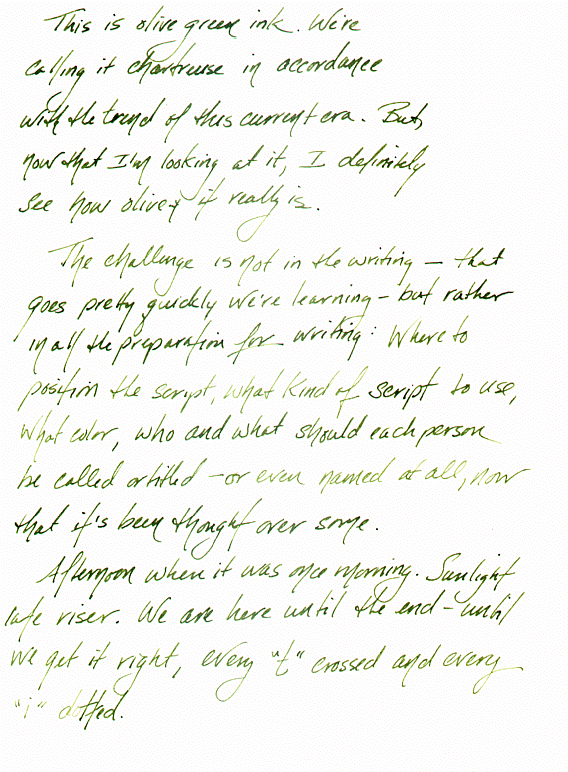 This is olive green ink. We're
calling it chartreuse in accordance
with the trend of this current era. But,
now that I'm looking at it, I definitely
see how olivey it really is.
The challenge is not in the writing – that
goes pretty quickly we're learning – but rather
in all the preparation for writing: Where to
position the script, what kind of script to use,
what color, who and what should each person
be called or titled – or even named at all, now
that it's been thought over some.
Afternoon when it was once morning. Sunlight
late riser. We are here until the end – until
we get it right, every "t" crossed and every
"i" dotted.